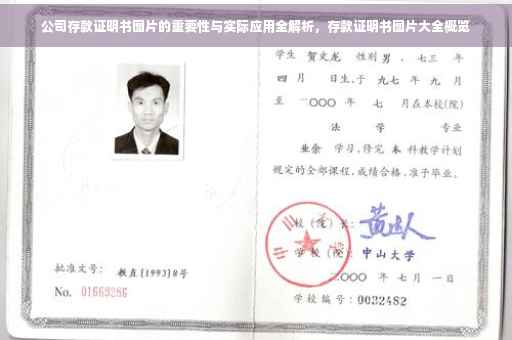 公司存款证明书图片的重要性与实际应用全解析，存款证明书图片大全概览
学生 贺文龙 性别 男 、七三 年
四 月 日生,于 九七 年 九 月
至 二〇〇〇 年 七 月在本校(院)
法 学 专业
业余 学习,修完 本 科教学计划
规定的全部课程,成绩合格,准予毕业。
校(院)长:
学校(院): 中山大学
二〇〇〇 年 七 月 一 日
学校编号: 0032482
批准文号: 教直[1993]8号
No. 01669286